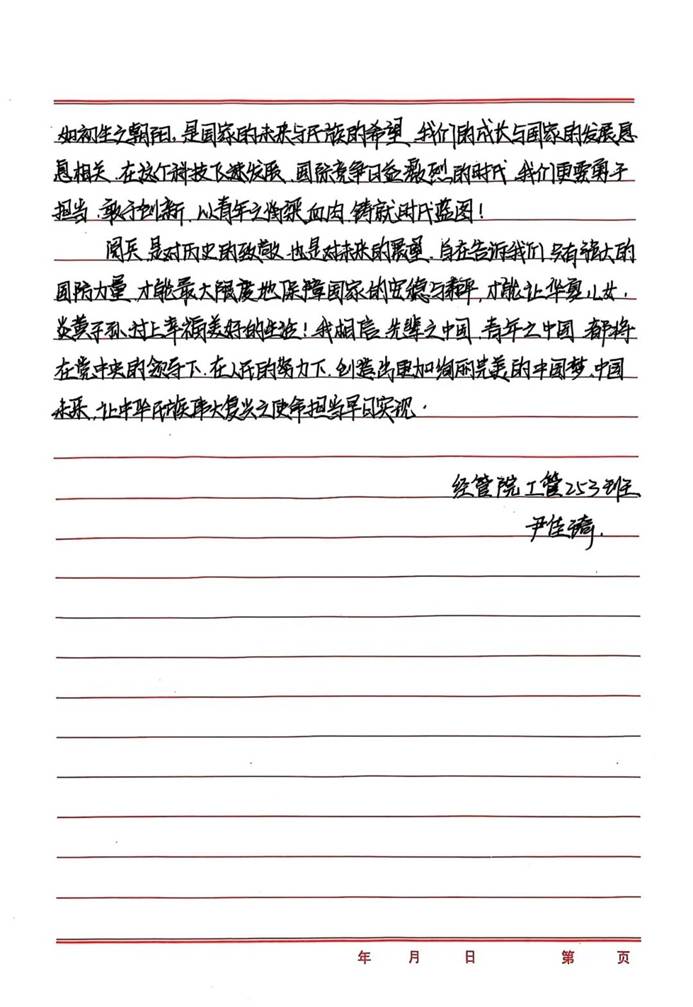 如初生之朝阳，是国家的未来与民族的希望，我们的成长与国家的发展息
息相关，在这个科技飞速发展、国际竞争日益激烈的时代，我们更要勇于
担当，敢于创新，以青年之血肉，铸就时代蓝图！
阅兵，是对历史的致敬，也是对未来的展望，旨在告诉我们，只有强大的
国防力量，才能最大限度地保障国家的安稳与和平，才能让华夏儿女，
炎黄子孙，过上幸福美好的生活！我相信，先辈之中国，青年之中国，都将
在党中央的领导下，在人民的努力下，创造出更加绚丽完美的中国梦，中国
未来，让中华民族伟大复兴之使命担当早日实现．
经管院工管253班
尹佳琦．
年 月 日 第 页